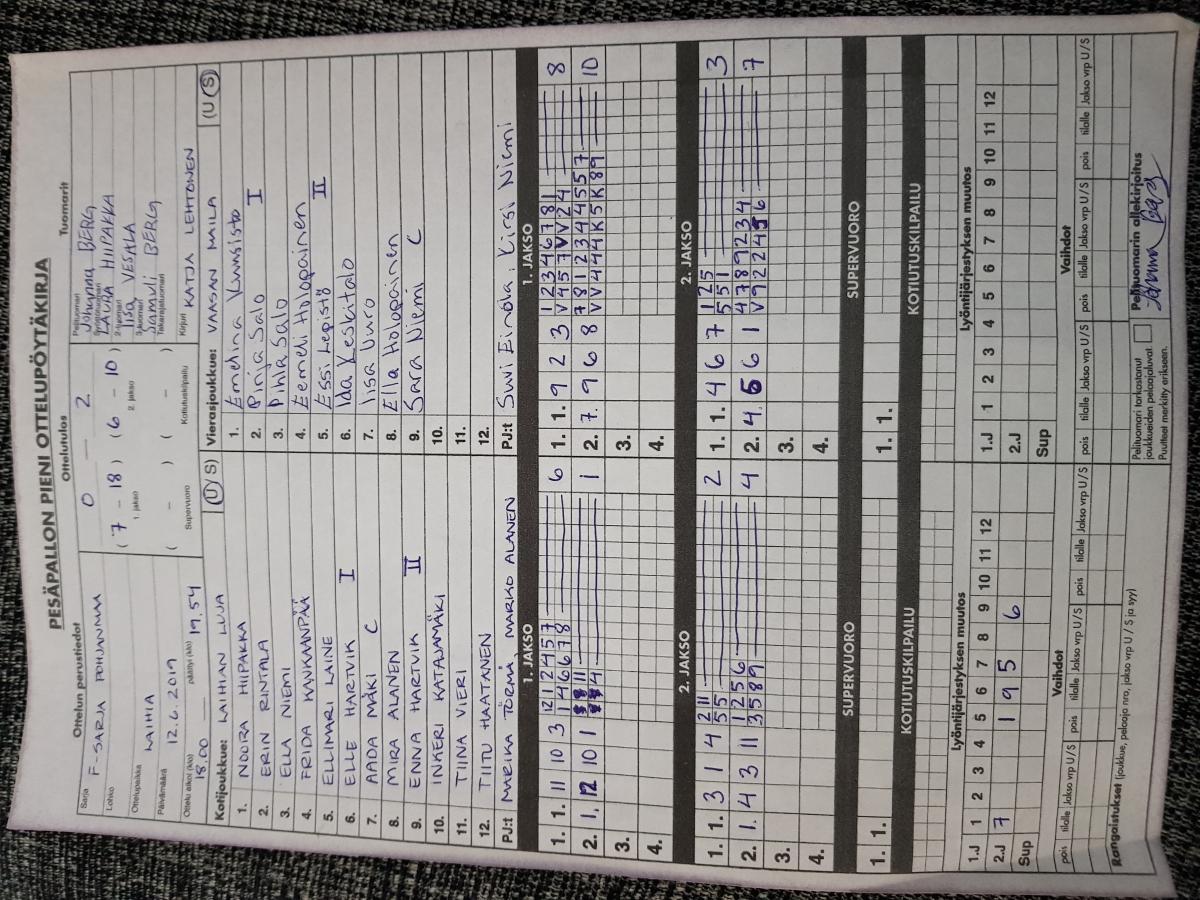 PESÄPALLON PIENI OTTELUPÖYTÄKIRJA
Ottelun perustiedot
Ottelutulos
Tuomarit
Sarja F-SARJA POHJANMAA
Lohko
Ottelupaikka LAIHIA
Päivämäärä 12.6.2019
Ottelu alkoi (klo) 18.00 päättyi (klo) 19,54
0 — 2
( 7 - 18 ) ( 6 - 10 )
1. jakso 2. jakso
( - ) ( - )
Supervuoro Kotiutuskilpailu
Pelituomari Johanna BERG
LAURA HIIPAKKA
2-tuomari IISA VESALA
3-tuomari Samuli BERG
Takarajatuomari
Kirjuri KATJA LEHTONEN
Kotijoukkue: LAIHIAN LUJA (U/S)
1. NOORA HIIPAKKA
2. ERIN RINTALA
3. ELLA NIEMI
4. FRIDA KANKAANPÄÄ
5. ELLIMARI LAINE
6. ELLE HARTVIK I
7. AADA MÄKI C
8. MIRA ALANEN
9. ENNA HARTVIK II
10. INKERI KATAJAMÄKI
11. TIINA VIERI
12. TIITU HAATANEN
PJ:t MARIKA TÖRMÄ, MARKO ALANEN
Vierasjoukkue: VAASAN MAILA (U/S)
1. Emelina Kuusisto
2. Pinja Salo I
3. Pihla Salo
4. Eemeli Holopainen
5. Essi Lepistö II
6. Ida Keskitalo
7. Iisa Vuro
8. Ella Holopainen
9. Sara Niemi C
10.
11.
12.
PJ:t Suvi Einola, Kirsi Niemi
1. JAKSO
1. 1. 11 10 3 12 1 2 4 5 7 6
1 4 6 6 7 8
2. 1. 12 10 1 1
3.
4.
1. JAKSO
1. 1. 9 2 3 1 2 3 4 6 7 8 1 8
V 4 5 7 V V 2 4
2. 7. 9 6 8 7 8 1 2 3 4 4 5 5 7 10
V V 4 4 4 K 5 K 8 9
3.
4.
2. JAKSO
1. 1. 3 1 4 2 11 2
5 5
2. 1. 4 3 11 1 2 5 6 4
3 5 8 9
3.
4.
2. JAKSO
1. 1. 4 6 7 1 2 5 3
5 5 1
2. 4. 5 6 1 4 7 8 9 2 3 4 7
V 9 1 2 2 4 5 6
3.
4.
SUPERVUORO
1. 1.
SUPERVUORO
1. 1.
KOTIUTUSKILPAILU
KOTIUTUSKILPAILU
Lyöntijärjestyksen muutos
1.J 1 2 3 4 5 6 7 8 9 10 11 12
2.J 7 1 9 5 6
Sup
Lyöntijärjestyksen muutos
1.J 1 2 3 4 5 6 7 8 9 10 11 12
2.J
Sup
Vaihdot
pois tilalle Jakso vrp U/S pois tilalle Jakso vrp U/S pois tilalle Jakso vrp U/S
Vaihdot
pois tilalle Jakso vrp U/S pois tilalle Jakso vrp U/S pois tilalle Jakso vrp U/S
Rangaistukset (joukkue, pelaaja nro, jakso vrp U / S ja syy)
Pelituomari tarkastanut
joukkueiden pelaajaluvat.
Puutteet merkitty erikseen.
Pelituomarin allekirjoitus